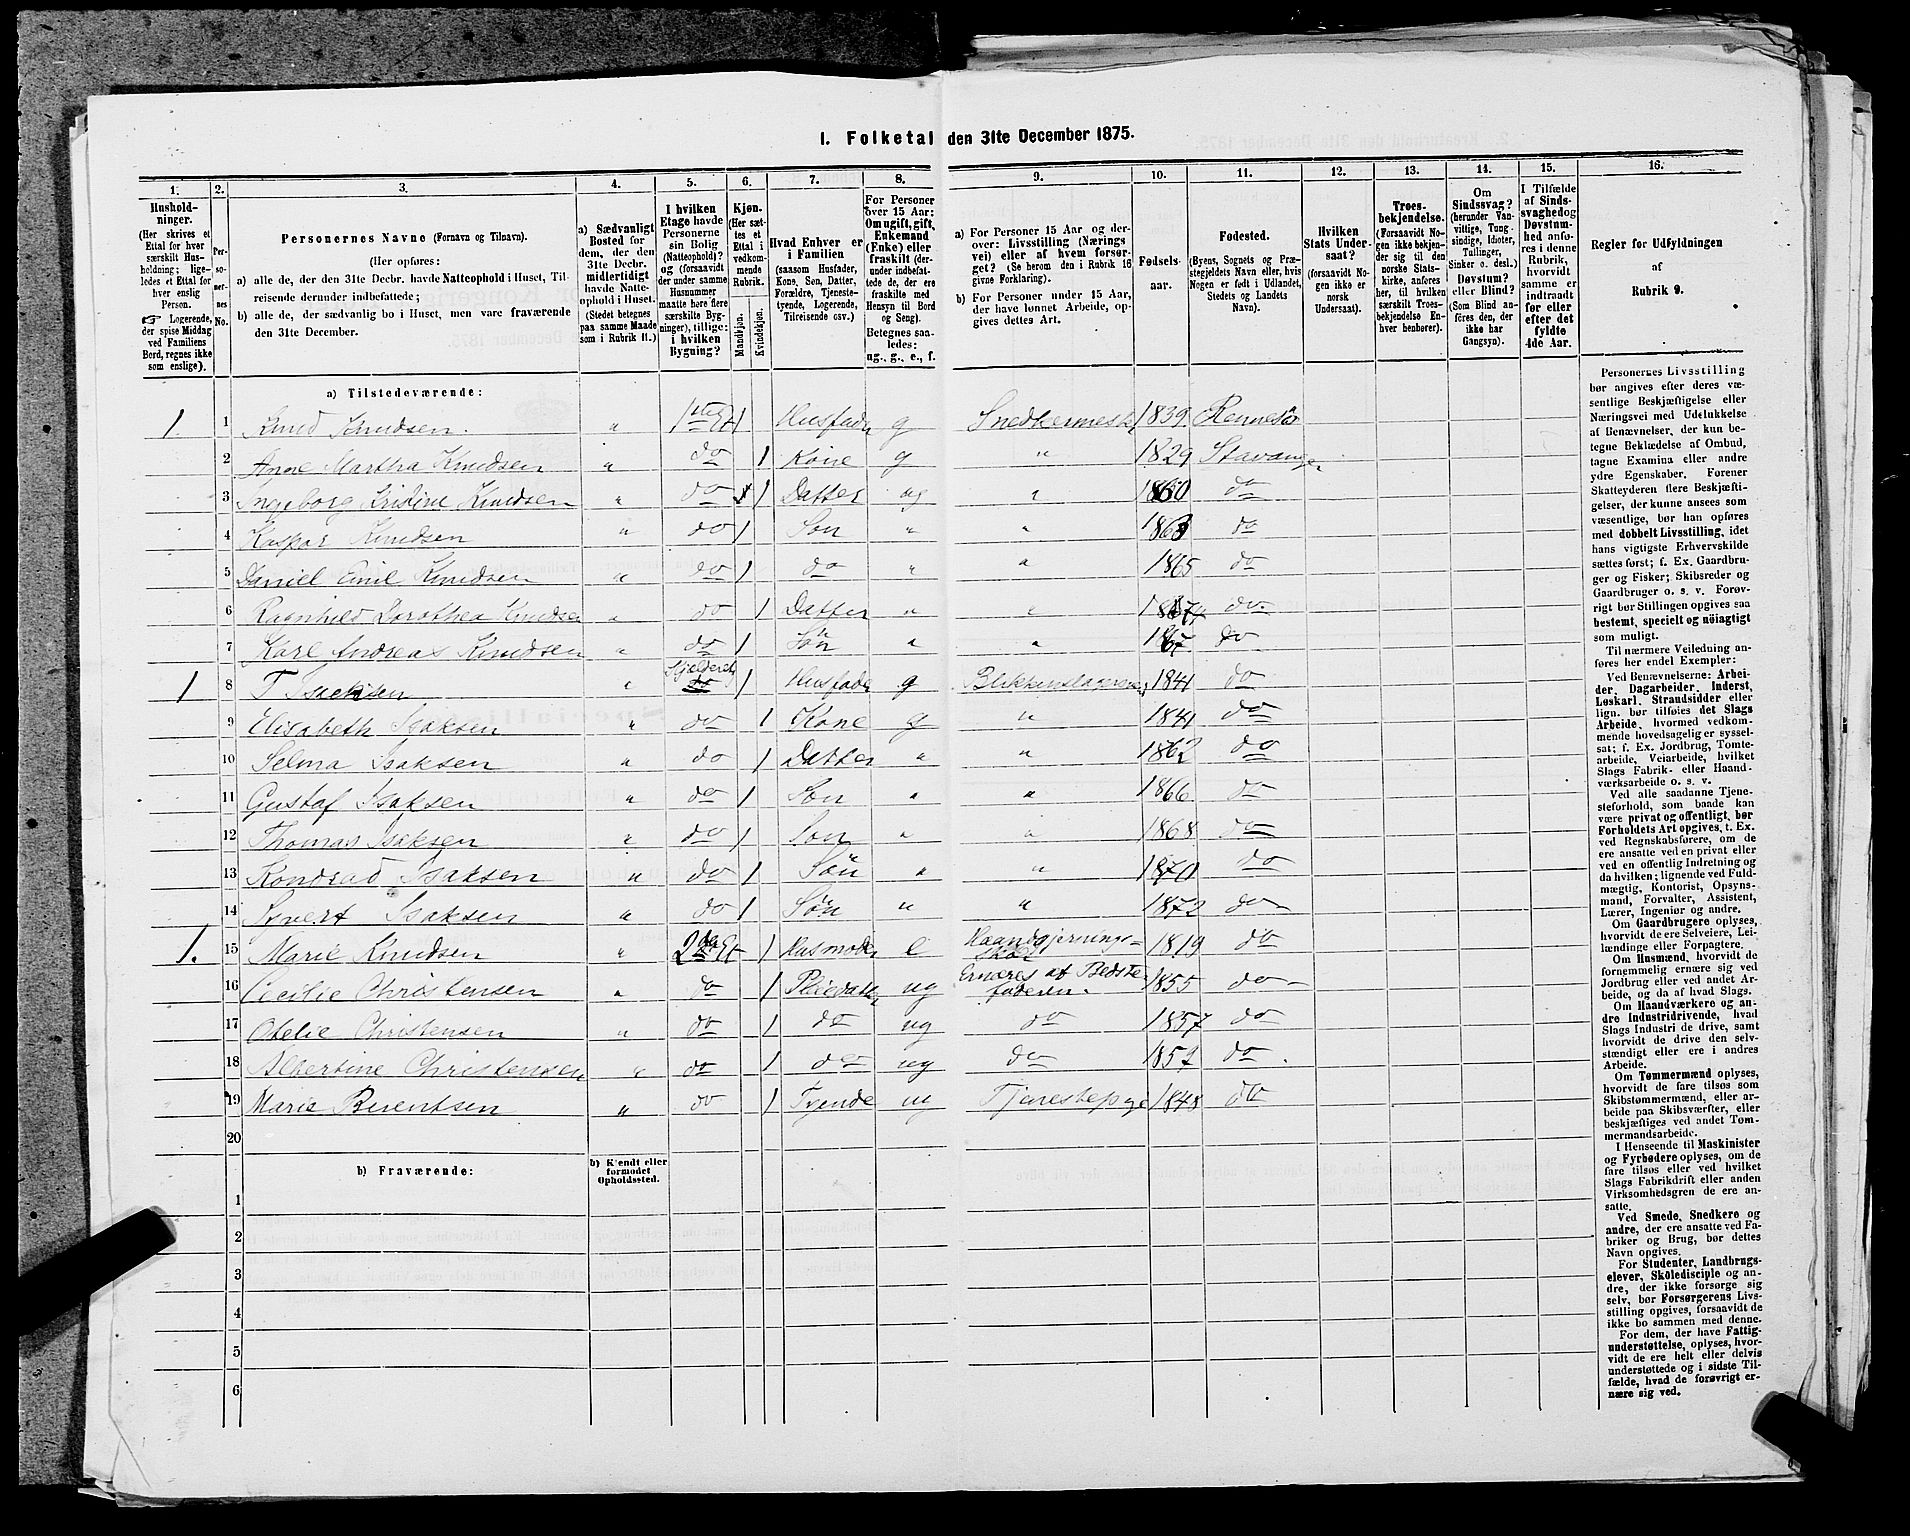 1. Folketal den 31te December 1875.
1. 2. 3. 4. 5. 6. 7. 8. 9. 10. 11. 12. 13. 14. 15. 16.
Husholdninger.
(Her skrives et
Ettal for hver
særskilt Husholdning;
ligeledes
et Ettal for
hver enslig
Person.
☞ Logerende,
der spise Middag
ved Familiens
Bord, regnes ikke
som enslige).
Personernes
No.
Personernes Navne (Fornavn og Tilnavn).
(Her opføres:
a) alle de, der den 31te Decbr. havde Natteophold i Huset, Tilreisende
derunder indbefattede;
b) alle de, der sædvanlig bo i Huset, men vare fraværende
den 31te Decbr.
a) Sædvanligt
Bosted for
dem, der den
31te Decbr.
midlertidigt
havde Natteophold
i Huset.
(Stedet betegnes
paa samme Maade
som i Rubrik 11.)
I hvilken
Etage havde
Personerne
sin Bolig
(Natteophold)?
og (forsaavidt
der under samme
Husnummer
maatte høre flere
særskilte Bygninger),
tillige:
i hvilken
Bygning?
Kjøn.
(Her sættes
et
Ettal i
vedkommende
Rubrik.
Mandkjøn.
Kvindekjøn.
Hvad Enhver er
i Familien
(saasom Husfader,
Kone, Søn, Datter,
Forældre, Tjenestetyende,
Logerende,
Tilreisende osv.)
For Personer
over 15 Aar:
Om ugift, gift,
Enkemand
(Enke) eller
fraskilt (derunder
indbefattede
de, ere
fraskilte med
Hensyn til Bord
og Seng).
Betegnes saaledes:
ug., g., e., f.
a) For Personer 15 Aar og derover:
Livsstilling (Næringsvei)
eller af hvem forsørget?
(Se herom den i Rubrik 16
givne Forklaring).
b) For Personer under 15 Aar,
der have lønnet Arbeide, opgives
dettes Art.
Fødselsaar.
Fødested.
(Byens, Sognets og Præstegjeldets
Navn eller, hvis
Nogen er født i Udlandet,
Stedets og Landets
Navn).
Hvilken
Stats Undersaat?
(forsaavidt Nogen
ikke er
norsk
Undersaat).
Troesbekjendelse.
(Forsaavidt Nogen
ikke bekjender
sig til den
norske Statskirke,
anføres
her, til hvilken
særskilt Troesbekjendelse
Enhver
henhører).
Om
Sindssvag?
(herunder Vanvittige,
Tungsindige,
Idioter,
Tullinger,
Sinker o. desl.)
Døvstum?
eller Blind?
(Som Blind anføres
den, der
ikke har
Gangsyn).
I Tilfælde
af Sindssvaghed
og
Døvstumhed
anføres
i denne
Rubrik,
hvorvidt
samme er
indtraadt
før eller
efter det
fyldte
4de Aar.
Regler for Udfyldningen
af
Rubrik 9.
a) Tilstedeværende:
1 1 Knud Knudsen. " 1ste Et 1 Husfader g Snedkermester 1839 Rennesø
2 Ane Martha Knudsen " do 1 Kone g " 1829 Stavanger
3 Ingeborg Kristine Knudsen " do 1 Datter ug " 1860 do
4 Kaspar Knudsen " do 1 Søn " " 1863 do
5 Daniel Emil Knudsen " do 1 do " " 1865 do
6 Ragnhild Dorothea Knudsen " do 1 Datter " " do
7 Karl Andreas Knudsen " do 1 Søn " " do
1 8 T Isaksen " Kjelderet 1 Husfader g Blikkenslager 1841 do
9 Elisabeth Isaksen " do 1 Kone g " 1841 do
10 Selma Isaksen " do 1 Datter " " 1862 do
11 Gustaf Isaksen " do 1 Søn " " 1866 do
12 Thomas Isaksen " do 1 Søn " " 1868 do
13 Kondrad Isaksen " do 1 Søn " " 1870 do
14 Syvert Isaksen " do 1 Søn " " 1872 do
1. 15 Marie Knudsen " 2den Et 1 Husmoder e Haandgjerningsskole 1819 do
16 Cecilie Christensen " do 1 Pleiedatter ug Ernæres af Bedstefaderen. 1855 do
17 Otelie Christensen " do 1 do ug do 1857 do
18 Albertine Christensen " do 1 do ug do do
19 Marie Berentsen " do 1 Tyende ug Tjenestepige 1848 do
20
b) Fraværende:
b) Kjendt eller
formodet
Opholdssted.
1
2
3
4
5
6
Personernes Livsstilling
bør angives efter deres væsentlige
Beskjæftigelse eller
Næringsvei med Udelukkelse
af Benævnelser, der kun betegne
Beklædelse af Ombud,
tagne Examina eller andre
ydre Egenskaber. Forener
Skatteyderen flere Beskjæftigelser,
der kunne ansees som
væsentlige, bør han opføres
med dobbelt Livsstilling, idet
hans vigtigste Erhvervskilde
sættes først; f. Ex. Gaardbruger
og Fisker; Skibsreder og
Gaardbruger o. s. v. Forøvrigt
bør Stillingen opgives saa
bestemt, specielt og nöiagtigt
som muligt.
Til nærmere Veiledning anføres
her endel Exempler:
Ved Benævnelserne: Arbeider,
Dagarbeider, Inderst,
Løskarl, Strandsidder eller
lign. bør tilføies det Slags
Arbeide, hvormed vedkommende
hovedsagelig er sysselsat;
f. Ex. Jordbrug, Tomtearbeide,
Veiarbeide, hvilket
Slags Fabrik- eller Haandværksarbeide
o. s. v.
Ved alle saadanne Tjenesteforhold,
som baade kan
være privat og offentligt, bør
Forholdets Art opgives, t. Ex.
ved Regnskabsførere, om de
ere ansatte ved en privat eller
ved en offentlig Indretning og
da hvilken; lignende ved Fuldmægtig,
Kontorist, Opsynsmand,
Forvalter, Assistent,
Lærer, Ingeniør og andre.
Om Gaardbrugere oplyses,
hvorvidt de ere Selveiere, Leilændinge
eller Forpagtere.
Om Husmænd, hvorvidt de
fornemmelig ernære sig ved
Jordbrug eller ved andet Arbeide,
og da af hvad Slags.
Om Haandværkere og andre
Industridrivende, hvad
Slags Industri de drive, samt
hvorvidt de drive den selvstændigt
eller ere i andres
Arbeide.
Om Tømmermænd oplyses,
hvorvidt de fare tilsøs som
Skibstømmermænd, eller arbeide
paa Skibsværfter, eller
beskjæftiges ved andet Tømmermandsarbeide.
I Henseende til Maskinister
og Fyrbødere oplyses, om de
fare tilsøs eller ved hvilket
Slags Fabrikdrift eller anden
Virksomhedsgren de ere ansatte.
Ved Smede, Snedkere og
andre, der ere ansatte ved Fabriker
og Brug, bør dettes
Navn opgives.
For Studenter, Landbrugselever,
Skoledisciple og andre,
der ikke forsørge sig
selv, bør Forsørgerens Livsstilling
opgives, forsaavidt de
ikke bo sammen med denne.
For dem, der have Fattigunderstøttelse,
oplyses, hvorvidt
de ere helt eller delvis
understøttede og i sidste Tilfælde,
hvad de forøvrigt ernære
sig ved.